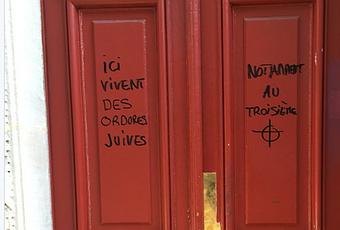 ici
VIVENT
DES
ORDURES
JUIVES
NOTAMMENT
AU
TROISIÈME